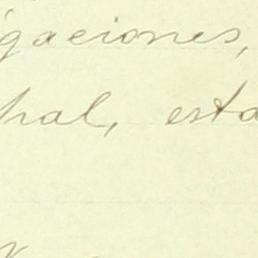 gaciones,
hal, esta